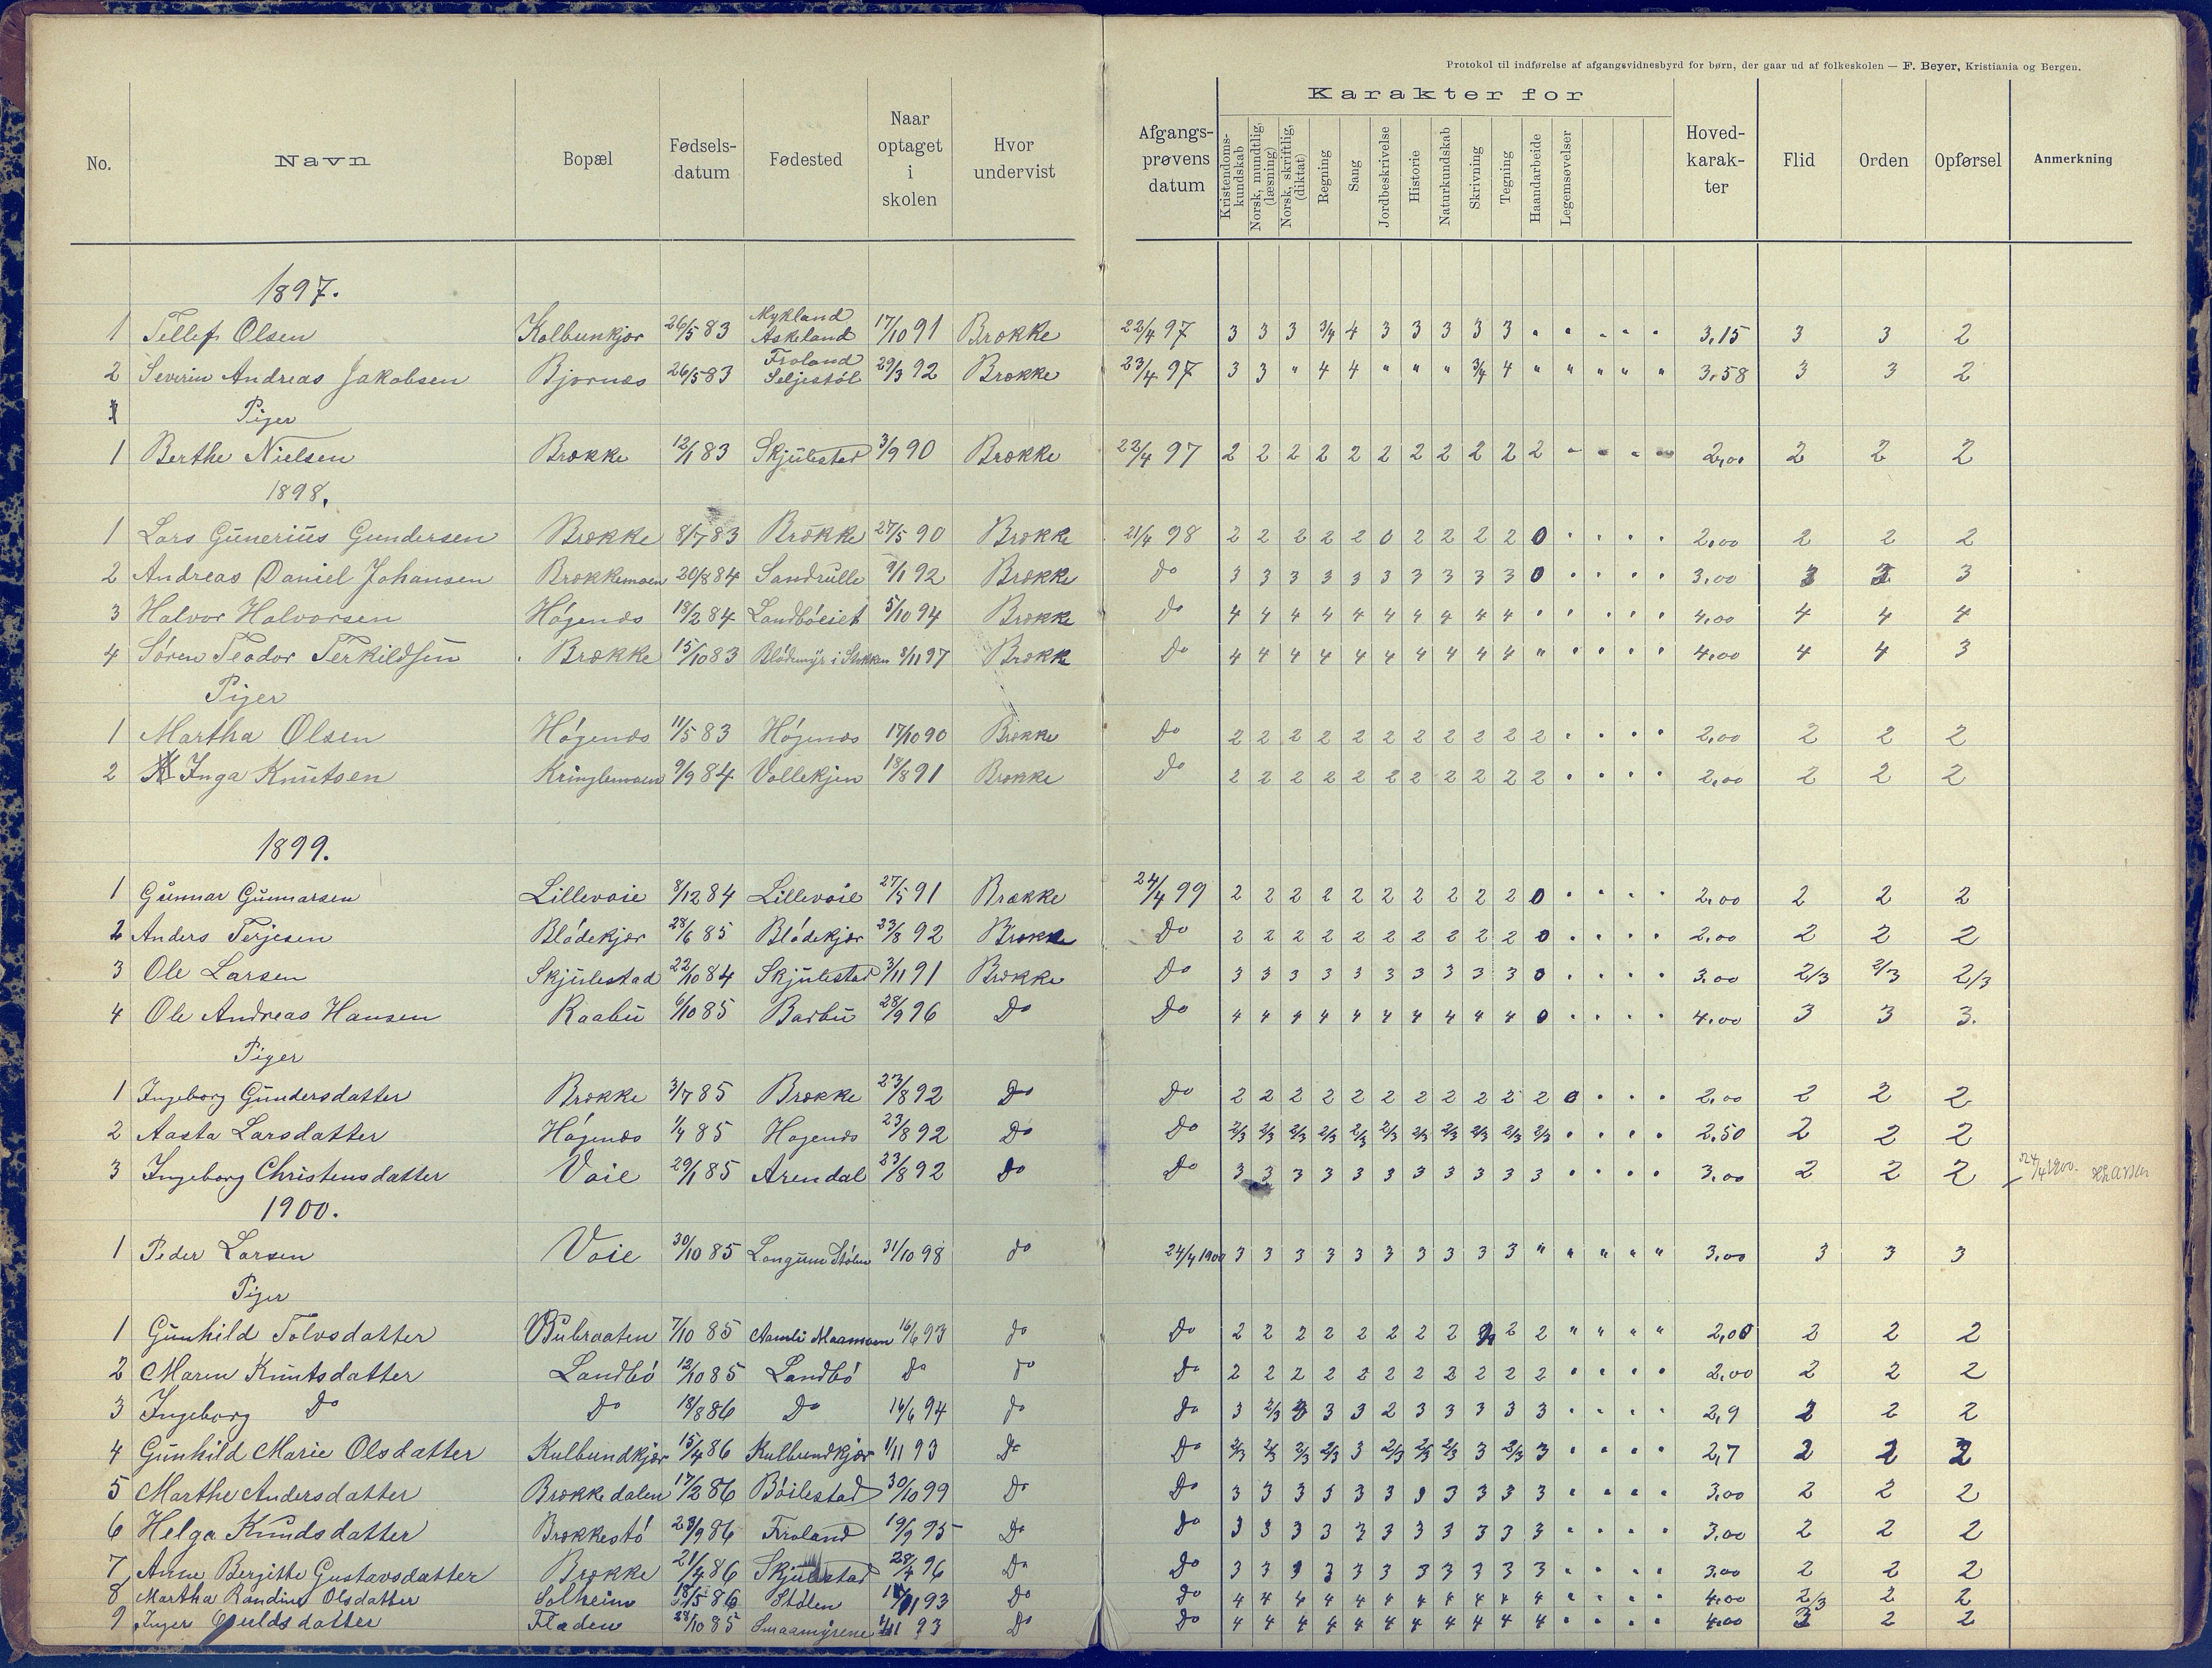 Protokol til indførelse af afgangsvidnesbyrd for børn, der gaar ud af folkeskolen — F. Beyer, Kristiania og Bergen.
Karakter for
No. Navn Bopæl Fødsels-datum Fødested Naar optaget i skolen Hvor undervist Afgangs-prøvens datum Kristendoms-kundskab Norsk, mundtlig, (læsning) Norsk, skriftlig, (diktat) Regning Sang Jordbeskrivelse Historie Naturkundskab Skrivning Tegning Haandarbeide Legemsøvelser Hoved-karak-ter Flid Orden Opførsel Anmerkning
1897.
1 Tellef Olsen Kolbunkjær 26/5 83 Mykland Askeland 17/10 91 Brække 22/4 97 3 3 3 3/4 4 3 3 3 3 3 " " " " " 3,15 3 3 2
2 Severin Andreas Jakobsen Bjornæs 26/5 83 Froland Seljestöl 29/3 92 Brække 23/4 97 3 3 " 4 4 " " " 3/4 4 " " " " " 3,58 3 3 2
Piger
1 Berthe Nielsen Brække 12/1 83 Skjulestad 3/9 90 Brække 22/4 97 2 2 2 2 2 2 2 2 2 2 2 " " " " 2,00 2 2 2
1898.
1 Lars Gunerius Gundersen Brække 8/7 83 Brække 27/5 90 Brække 21/4 98 2 2 2 2 2 0 2 2 2 2 0 " " " " 2,00 2 2 2
2 Andreas Daniel Johansen Brækkemoen 20/8 84 Sandrulle 9/1 92 Brække do 3 3 3 3 3 3 3 3 3 3 0 " " " " 3,00 3 3 3
3 Halvor Halvorsen Högenæs 18/2 84 Landböeiet 5/10 94 Brække Do 4 4 4 4 4 4 4 4 4 4 " " " " " 4,00 4 4 4
4 Sören Teodor Terkildsen Brække 15/10 83 Blödemyr i Stokken 8/11 97 Brække Do 4 4 4 4 4 4 4 4 4 4 " " " " " 4,00 4 4 3
Piger
1 Martha Olsen Högenæs 11/5 83 Högenæs 17/10 90 Brække Do 2 2 2 2 2 2 2 2 2 2 2 " " " " 2,00 2 2 2
2 Inga Knutsen Kringlemoen 9/9 84 Vollekjen 18/8 91 Brække Do 2 2 2 2 2 2 2 2 2 2 2 " " " " 2,00 2 2 2
1899.
1 Gunnar Gunnarsen Lillevaie 8/12 84 Lillevaie 27/5 91 Brække 24/4 99 2 2 2 2 2 2 2 2 2 2 0 " " " " 2,00 2 2 2
2 Anders Terjesen Blödekjær 28/6 85 Blödekjær 23/8 92 Brække Do 2 2 2 2 2 2 2 2 2 2 0 " " " " 2,00 2 2 2
3 Ole Larsen Skjulestad 22/10 84 Skjulestad 3/11 91 Brække Do 3 3 3 3 3 3 3 3 3 3 0 " " " " 3,00 2/3 2/3 2/3
4 Ole Andreas Hansen Raabu 6/10 85 Barbu 28/9 96 Do Do 4 4 4 4 4 4 4 4 4 4 0 " " " " 4,00 3 3 3.
Piger
1 Ingeborg Gundersdatter Brække 3/7 85 Brække 23/8 92 Do Do 2 2 2 2 2 2 2 2 2 2 2 0 " " " 2,00 2 2 2
2 Aasta Larsdatter Högenæs 85 Hagenæs 23/8 92 Do Do 2/3 2/3 2/3 2/3 2/3 2/3 2/3 2/3 2/3 2/3 2/3 " " " " 2,50 2 2 2
3 Ingeborg Christensdatter Vaie 29/1 85 Arendal 23/8 92 Do Do 3 3 3 3 3 3 3 3 3 3 3 " " " " 3,00 2 2 2 24/4 1900.
1900.
1 Peder Larsen Vaie 30/10 85 Langum Stölen 31/10 98 do 24/4 1900 3 3 3 3 3 3 3 3 3 3 " " " " " 3,00 3 3 3
Piger
1 Gunhild Tolvsdatter Bubraaten 7/10 85 Aamli Maamoen 16/6 93 do Do 2 2 2 2 2 2 2 2 2 2 2 " " " " 2,00 2 2 2
2 Maren Knutsdatter Landbö 12/10 85 Landbö Do do Do 2 2 2 2 2 2 2 2 2 2 2 " " " " 2,00 2 2 2
3 Ingeborg Do Do 18/8 86 Do 16/6 94 do Do 3 2/3 3 3 3 2 3 3 3 3 3 " " " " 2,9 2 2 2
4 Gunhild Marie Olsdatter Kulbundkjær 15/4 86 Kulbundkjær 1/11 93 Do Do 2/3 2/3 2/3 2/3 3 2/3 2/3 2/3 3 2/3 3 " " " " 2,7 2 2 2
5 Marthe Andersdatter Brækkedalen 17/2 86 Böilestad 30/10 99 Do Do 3 3 3 3 3 3 3 3 3 3 3 " " " " 3,00 2 2 2
6 Helga Knudsdatter Brækkestö 23/9 86 Froland 19/9 95 Do Do 3 3 3 3 3 3 3 3 3 3 3 " " " " 3,00 2 2 2
7 Anne Bergitte Gustavsdatter Brække 21/4 86 Skjulestad 28/4 96 Do Do 3 3 3 3 3 3 3 3 3 3 3 " " " " 3,00 2 2 2
8 Martha Randine Olsdatter Solheim 18/5 86 Stölen 93 Do Do 4 4 4 4 4 4 4 4 4 4 4 " " " " 4,00 2/3 2 2
9 Inger datter Fladen 28/10 85 Smaamyrene 93 Do Do 4 4 4 4 4 4 4 4 4 4 4 " " " " 4,00 3 2 2